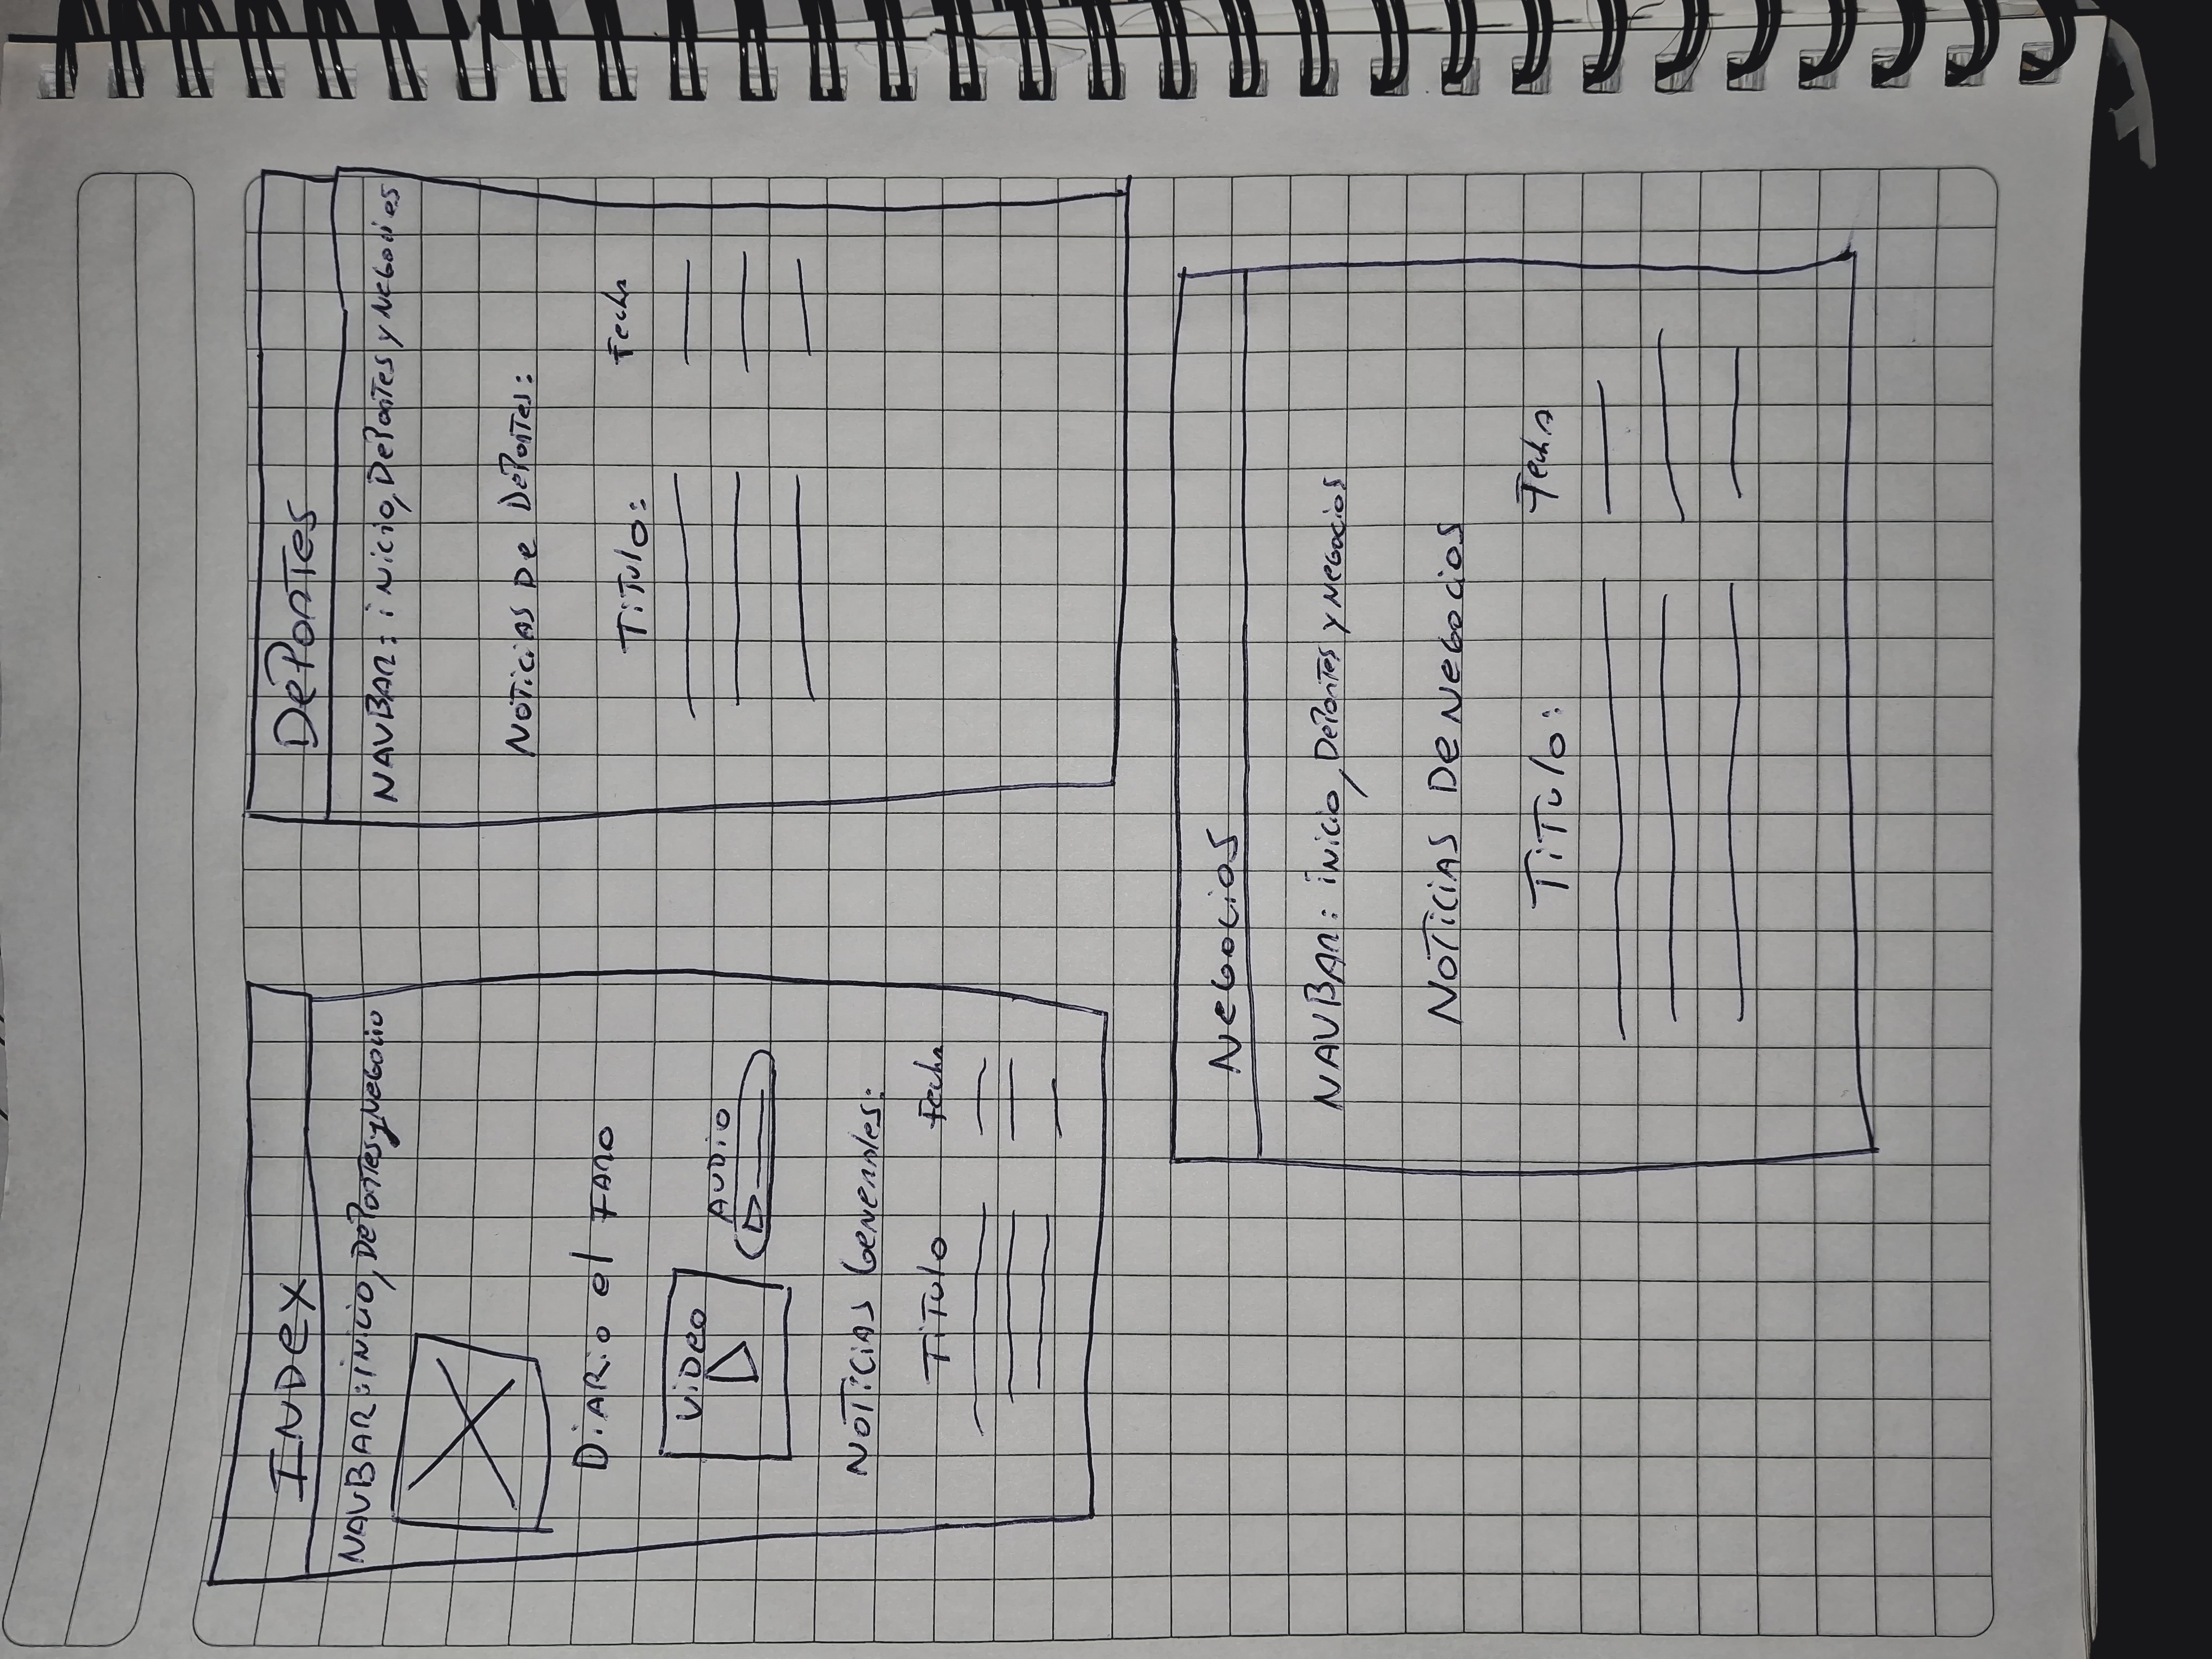 INDEX
NAVBAR: inicio, DePortes y Negocio
Diario el Faro
Video
Audio
Noticias Generales:
Titulo Fecha
DePortes
NAVBAR: inicio, DePortes y Negocios
Noticias De DePortes:
Titulo: Fecha
Negocios
NAVBAR: inicio, DePortes y Negocios
Noticias De Negocios
Titulo: Fecha